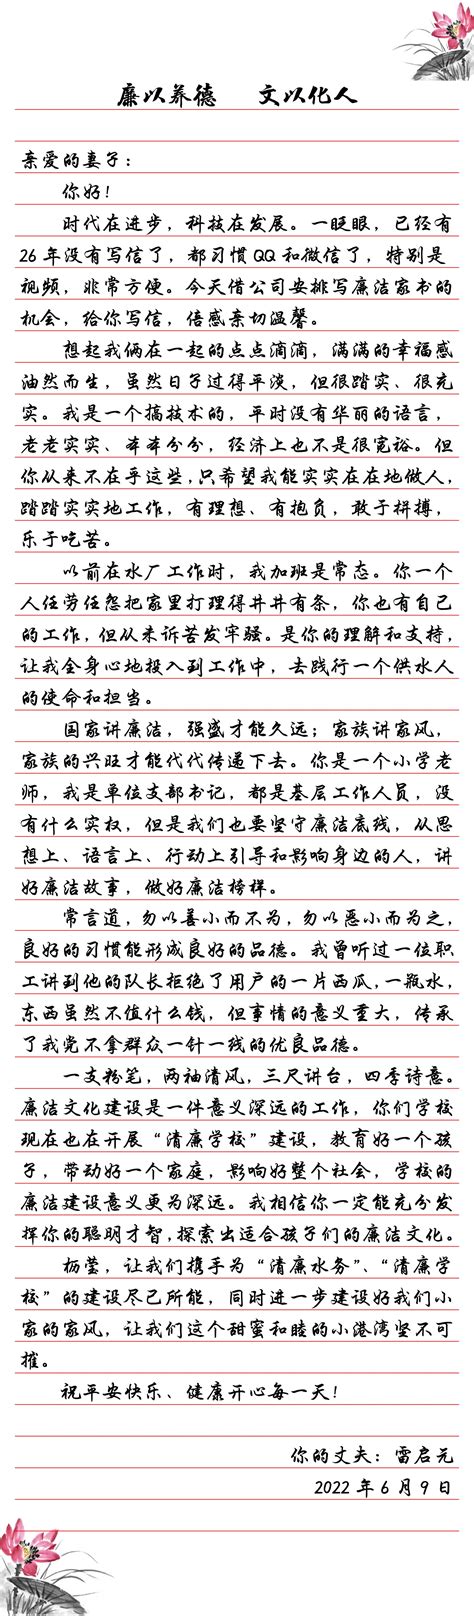 廉以养德 文以化人
亲爱的妻子：
你好！
时代在进步，科技在发展。一眨眼，已经有
26年没有写信了，都习惯QQ和微信了，特别是
视频，非常方便。今天借公司安排写廉洁家书的
机会，给你写信，倍感亲切温馨。
想起我俩在一起的点点滴滴，满满的幸福感
油然而生，虽然日子过得平淡，但很踏实、很充
实。我是一个搞技术的，平时没有华丽的语言，
老老实实、本本分分，经济上也不是很宽裕。但
你从来不在乎这些，只希望我能实实在在地做人，
踏踏实实地工作，有理想、有抱负，敢于拼搏，
乐于吃苦。
以前在水厂工作时，我加班是常态。你一个
人任劳任怨把家里打理得井井有条，你也有自己
的工作，但从未诉苦发牢骚。是你的理解和支持，
让我全身心地投入到工作中，去践行一个供水人
的使命和担当。
国家讲廉洁，强盛才能久远；家族讲家风，
家族的兴旺才能代代传递下去。你是一个小学老
师，我是单位支部书记，都是基层工作人员，没
有什么实权，但是我们也要坚守廉洁底线，从思
想上、语言上、行动上引导和影响身边的人，讲
好廉洁故事，做好廉洁榜样。
常言道，勿以善小而不为，勿以恶小而为之，
良好的习惯能形成良好的品德。我曾听过一位职
工讲到他的队长拒绝了用户的一片西瓜，一瓶水，
东西虽然不值什么钱，但事情的意义重大，传承
了我党不拿群众一针一线的优良品德。
一支粉笔，两袖清风，三尺讲台，四季诗意。
廉洁文化建设是一件意义深远的工作，你们学校
现在也在开展“清廉学校”建设，教育好一个孩
子，带动好一个家庭，影响好整个社会，学校的
廉洁建设意义更为深远。我相信你一定能充分发
挥你的聪明才智，探索出适合孩子们的廉洁文化。
枥莹，让我们携手为“清廉水务”、“清廉学
校”的建设尽已所能，同时进一步建设好我们小
家的家风，让我们这个甜蜜和睦的小港湾坚不可
摧。
祝平安快乐、健康开心每一天！
你的丈夫：雷启元
2022年6月9日